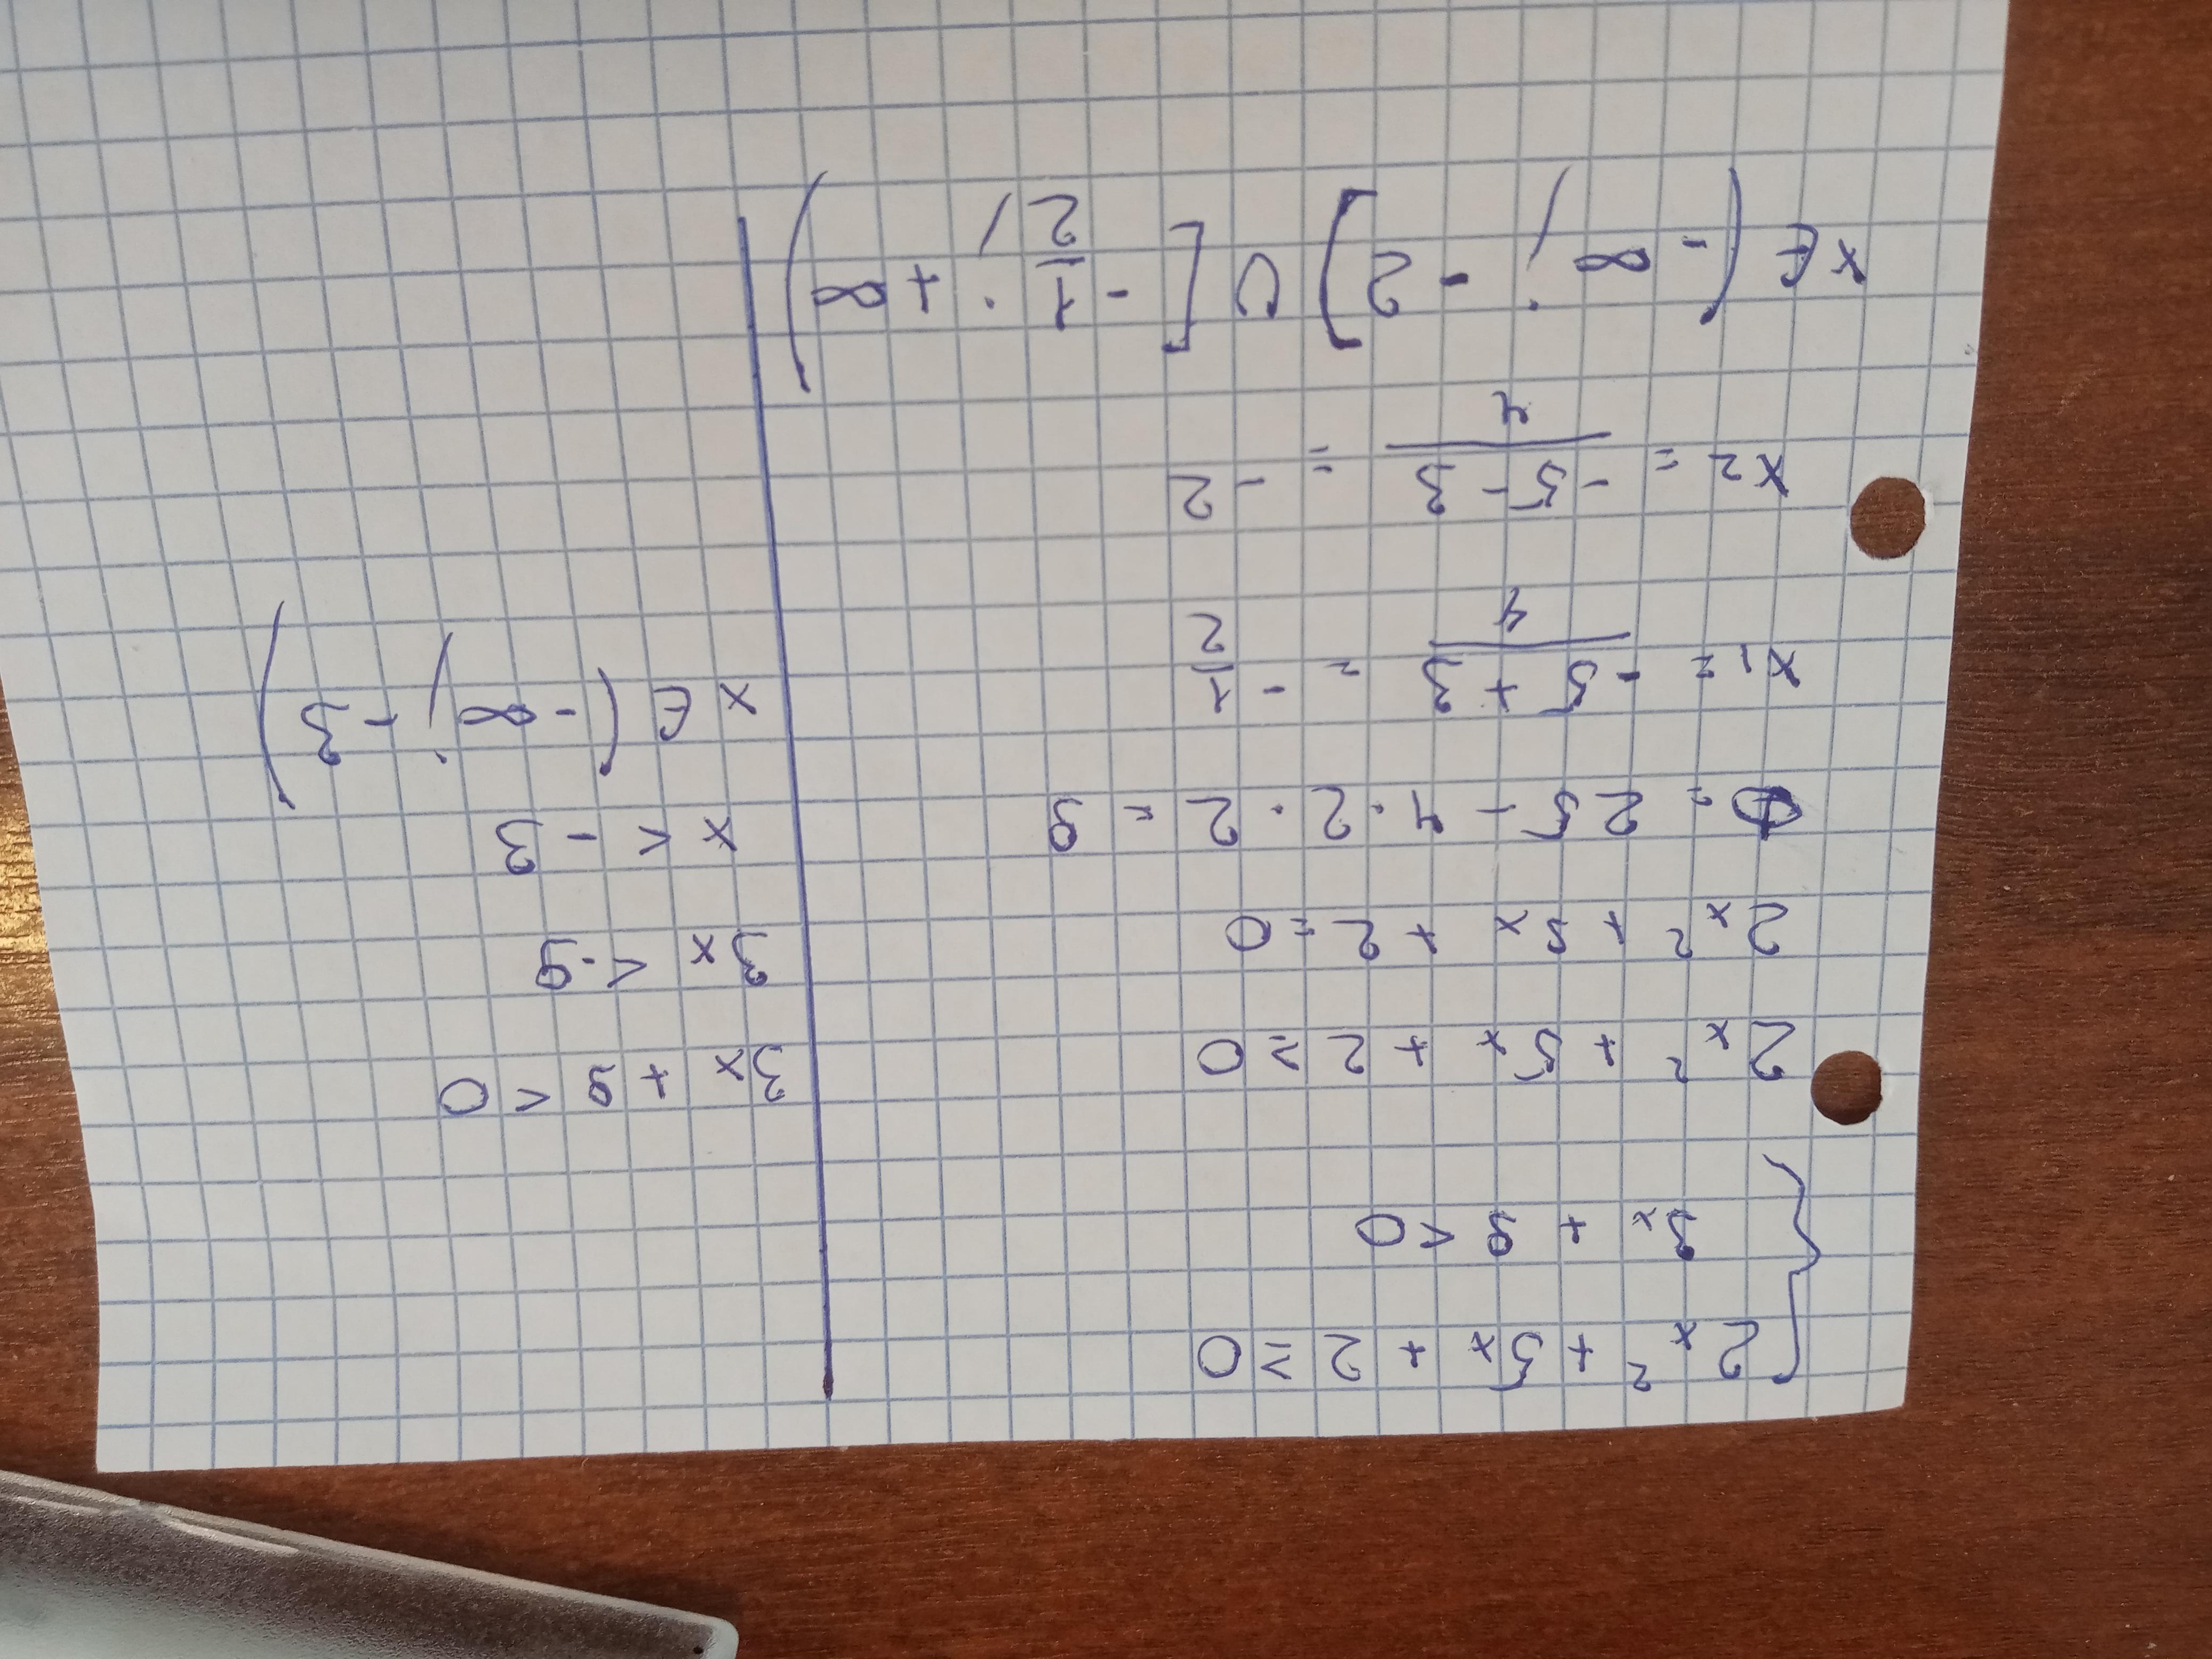 2x² + 5x + 2 ≥ 0
3x + 9 < 0
2x² + 5x + 2 ≥ 0
2x² + 5x + 2 = 0
D = 25 - 4 · 2 · 2 = 9
x1 = \frac{-5 + 3}{4} = -\frac{1}{2}
x2 = \frac{-5 - 3}{4} = -2
x ∈ (-∞; -2] ∪ [-\frac{1}{2}; +∞)
3x + 9 < 0
3x < -9
x < -3
x ∈ (-∞; -3)